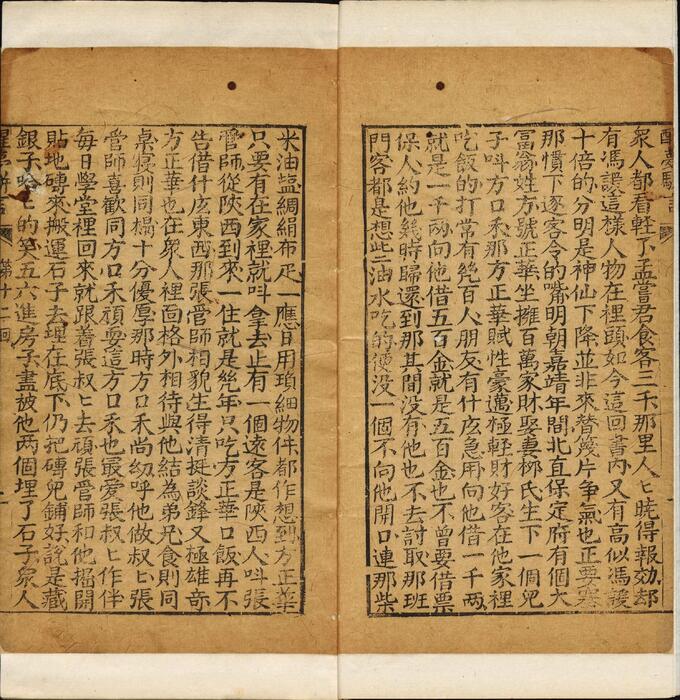 衆人都看輕了孟嘗君食客三千那里人匕曉得報効却
有馮諼這樣人物在裡頭如今這回書內又有高似馮諼
十倍的分明是神仙下降並非來替篾片爭氣也正要塞
那慣下逐客令的嘴明朝嘉靖年間北直保定府有個大
富翁姓方號正華坐擁百萬家財娶妻柳氏生下一個兒
子呌方口禾那方正華賦性豪邁極輕財好客在他家裡
吃飯的打常有幾百人朋友有什庅急用向他借一千兩
就是一千兩向他借五百金就是五百金也不曾要借票
保人約他幾時歸還到那其間没有他也不去討取那班
門客都是想些油水吃的便没一個不向他開口連那柴
米油盐綢絹布疋一應日用瑣細物件都作想到方正華
只要有在家裡就呌拿去止有一個遠客是陝西人呌張
管師從陝西到來一住就是幾年只吃方正華口飯再不
告借什庅東西那張管師相貌生得清挺談鋒又極雄竒
方正華也在衆人裡面格外相待與他結為弟兄食則同
桌寢則同榻十分優厚那時方口禾尚纫呼他做叔匕張
管師喜歡同方口禾頑耍這方口禾也最愛張叔匕作伴
每日學堂裡回來就跟着張叔匕去頑張管師和他撬開
貼地磚來搬運石子去埋在底下仍把磚兒鋪好說是藏
銀子哈匕的笑五六進房子盡被他兩個埋了石子衆人
第十二回